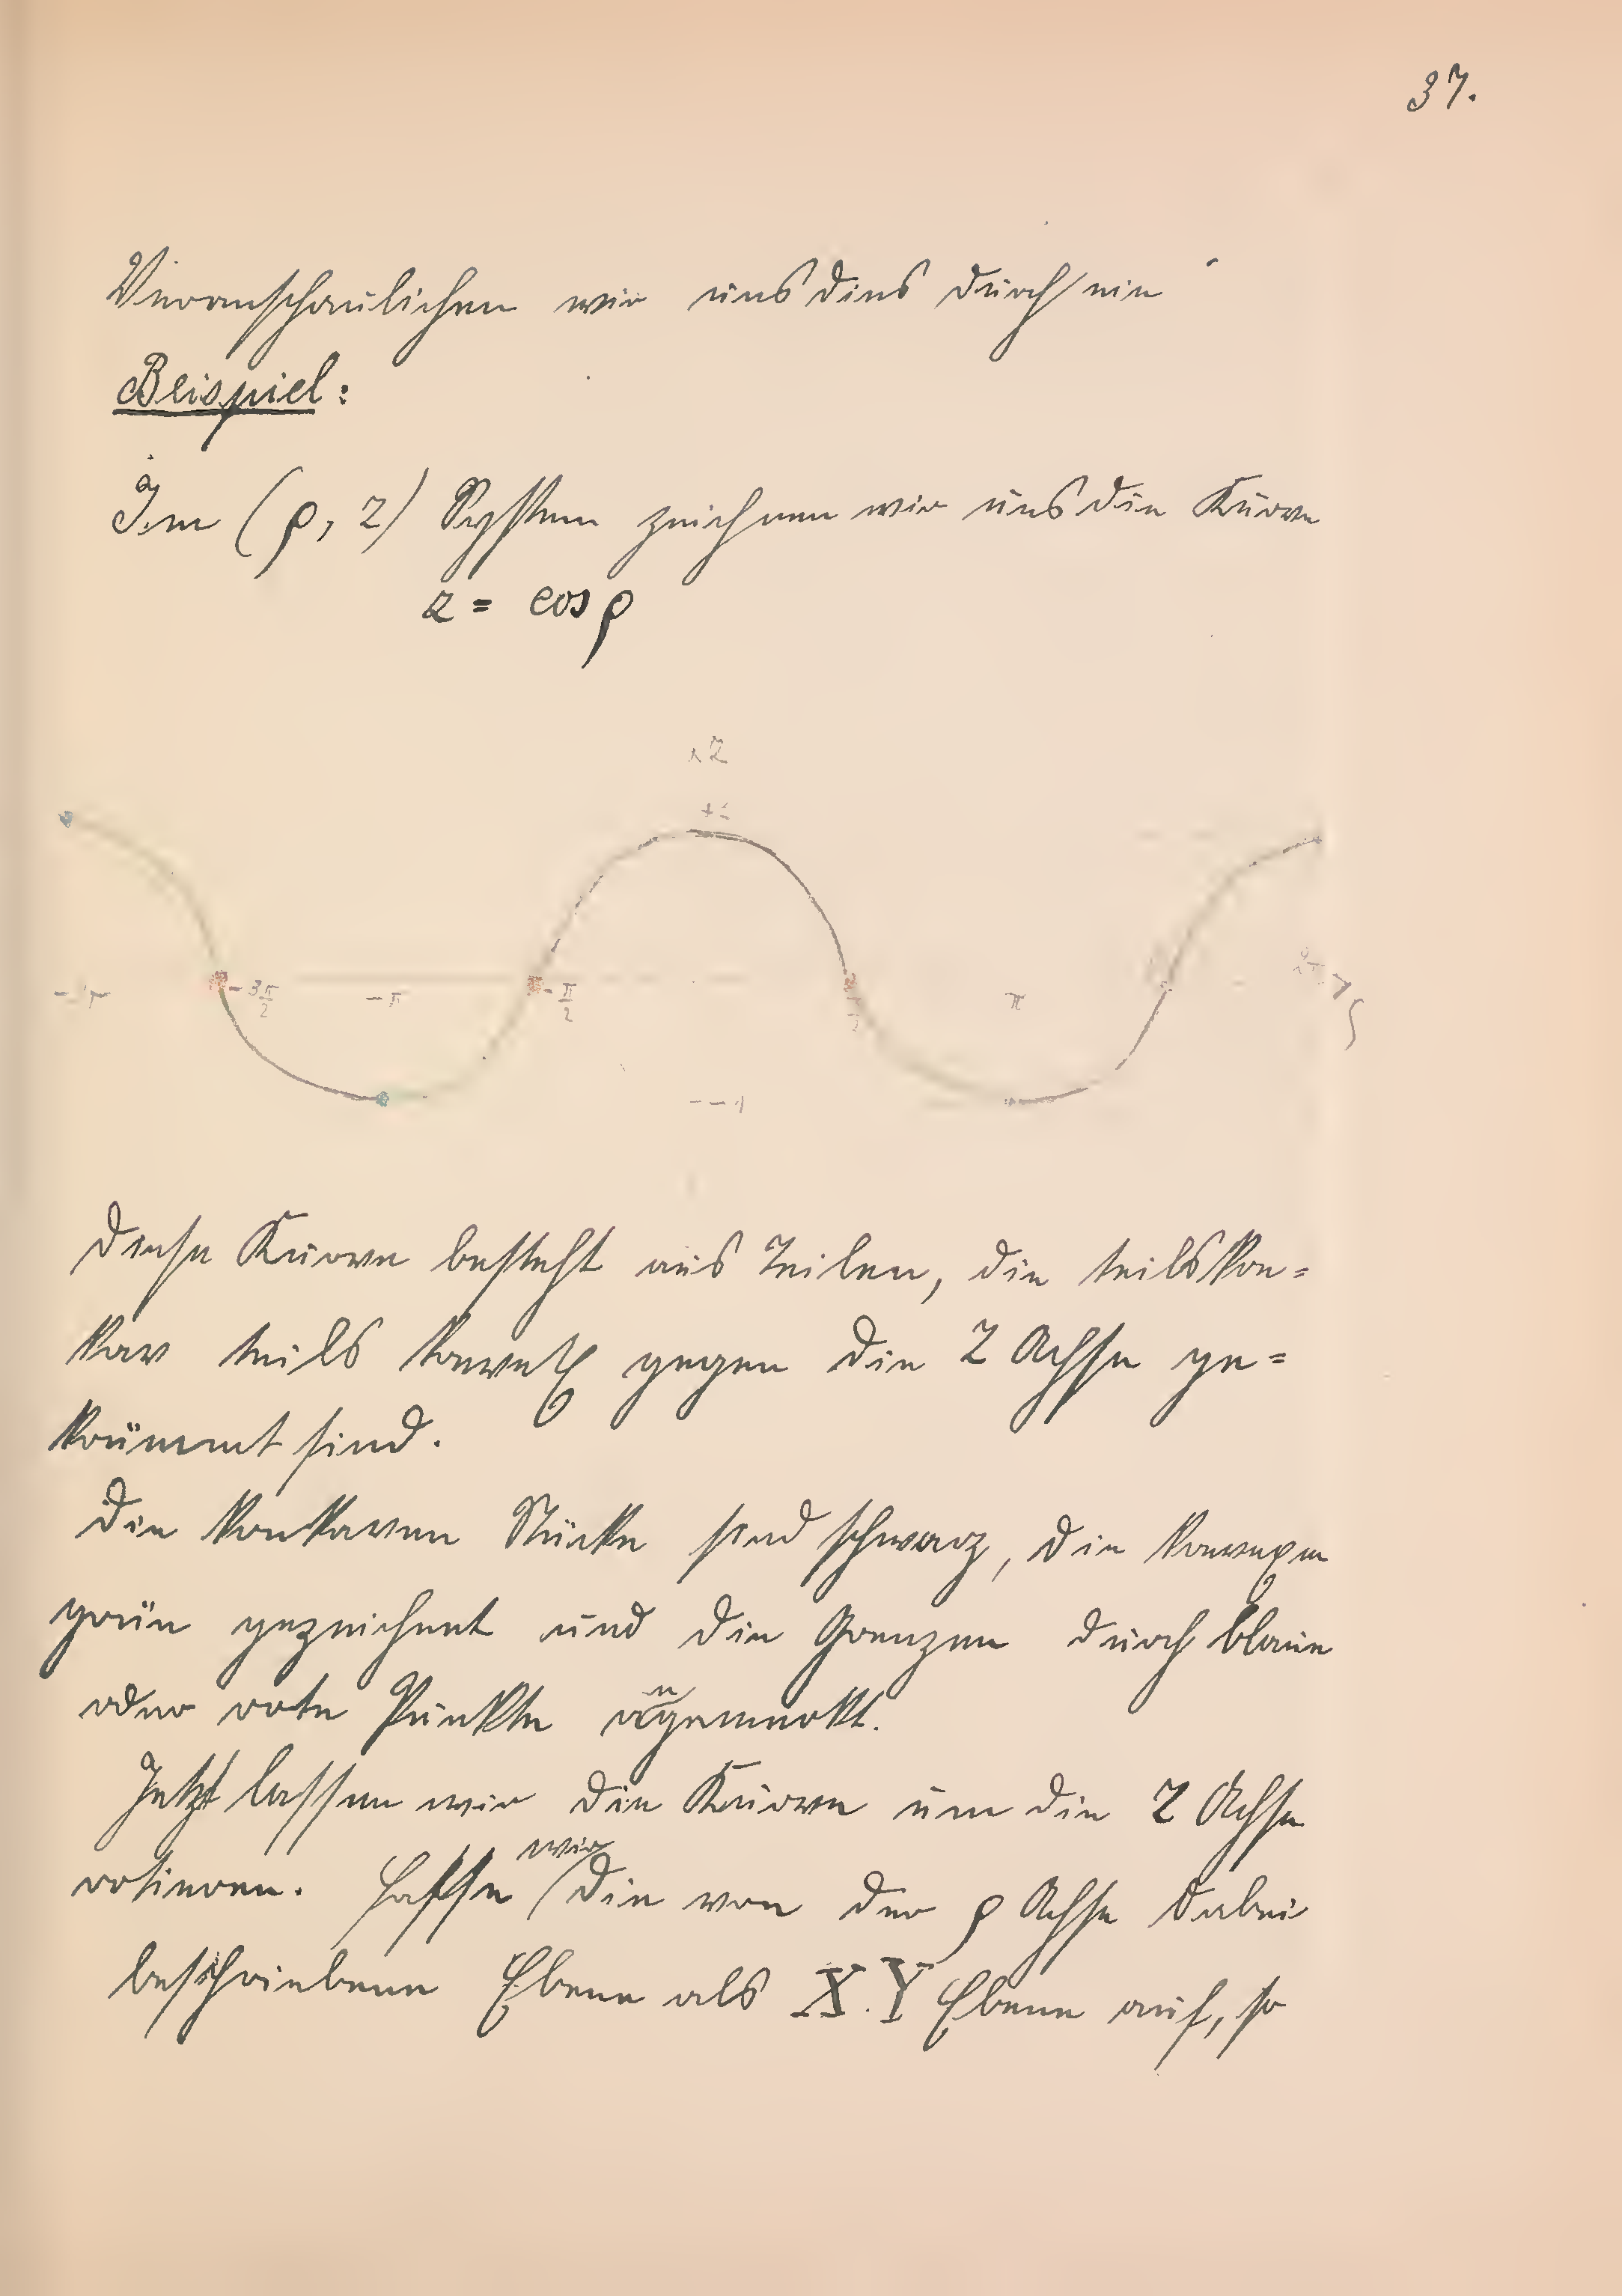 37.
Veranschaulichen wir uns dies durch ein
Beispiel:
Im (ρ, z) System zeichnen wir uns die Kurve
z = cos ρ
z
+1
- 3π/2
- π
- π/2
π
2π
ρ
- 1
Diese Kurve besteht aus Teilen, die teils kon=
kav teils konvex gegen die Z Achse ge=
krümmt sind.
Die konkaven Stücke sind schwarz, die konvexen
grün gezeichnet und die Grenzen durch blaue
oder rote Punkte angemerkt.
Jetzt lassen wir die Kurve um die Z Achse
rotieren. Fasse wir die von der ρ Achse dabei
beschriebene Ebene als X.Y Ebene auf, so